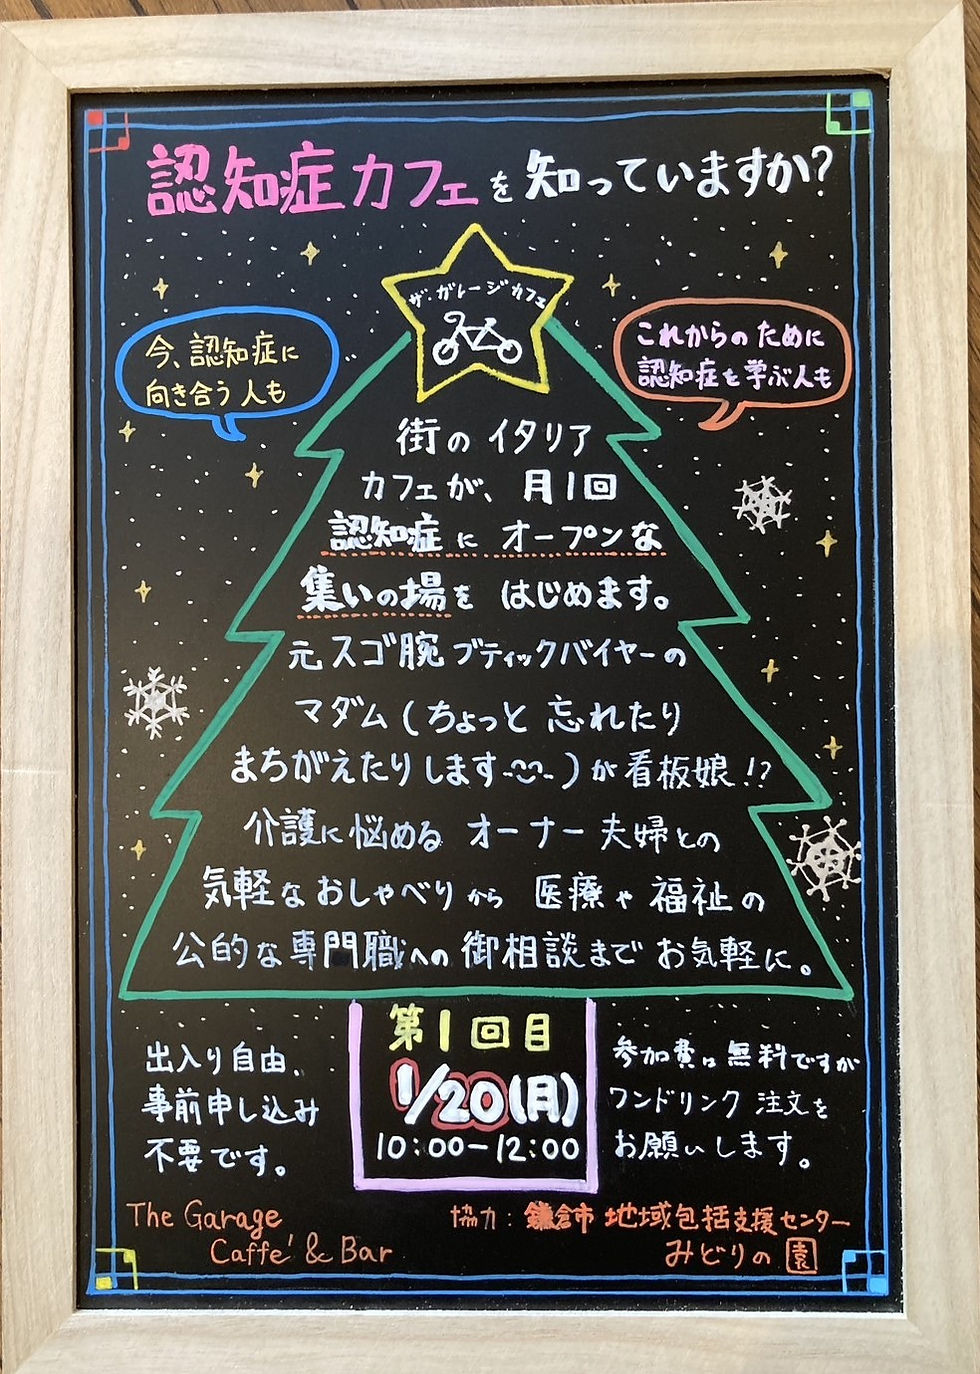 認知症カフェを知っていますか?
ザ・ガレージカフェ
今、認知症に
向き合う人も
これからのために
認知症を学ぶ人も
街のイタリア
カフェが、月1回
認知症にオープンな
集いの場をはじめます。
元スゴ腕ブティックバイヤーの
マダム(ちょっと忘れたり
まちがえたりします)が看板娘!?
介護に悩めるオーナー夫婦との
気軽なおしゃべりから 医療や福祉の
公的な専門職への御相談までお気軽に。
第1回目
1/20(月)
10:00-12:00
出入り自由、
事前申し込み
不要です。
参加費は無料ですが
ワンドリンク注文を
お願いします。
The Garage
Caffe' & Bar
協力:鎌倉市地域包括支援センター
みどりの園